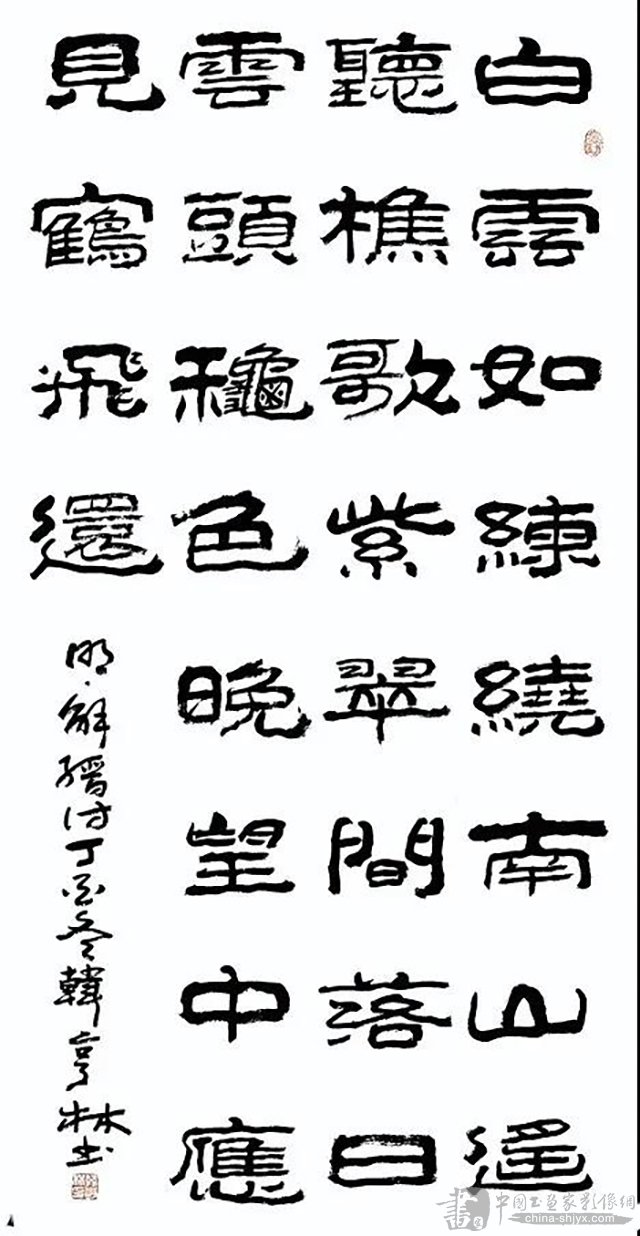 白雲如練繞南山遙
聽樵歌紫翠間落日
雲頭龝色晚望中應
見鶴飛還
明·解縉诗丁酉冬韓亨林书
書
中國书画家影像網
china-shjyx.com